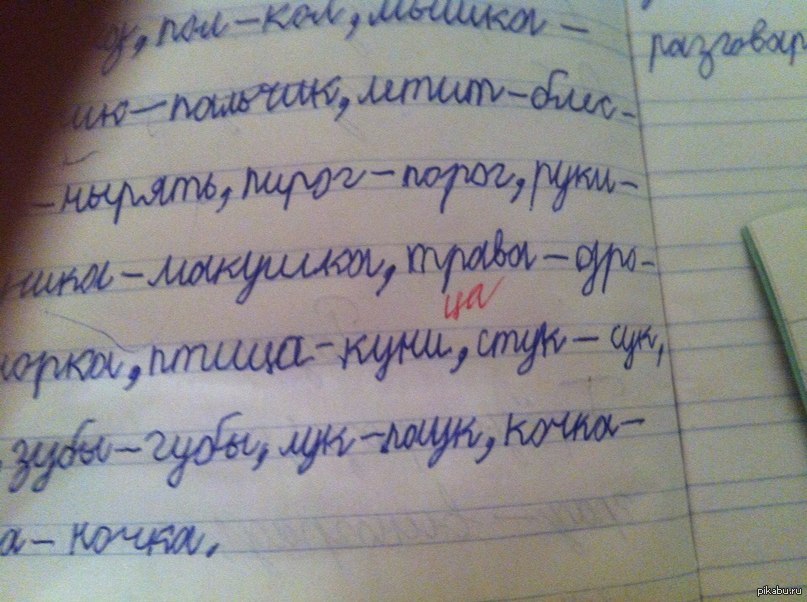 пол-кол, мышка-
разговар
-пальчик, летит-блес-
-нырять, пирог-порог, руки-
-макушка, трава-дро-
ца
норка, птица-куни, стук-сук,
зубы-губы, лук-паук, кочка-
а-ночка.
pikabu.ru